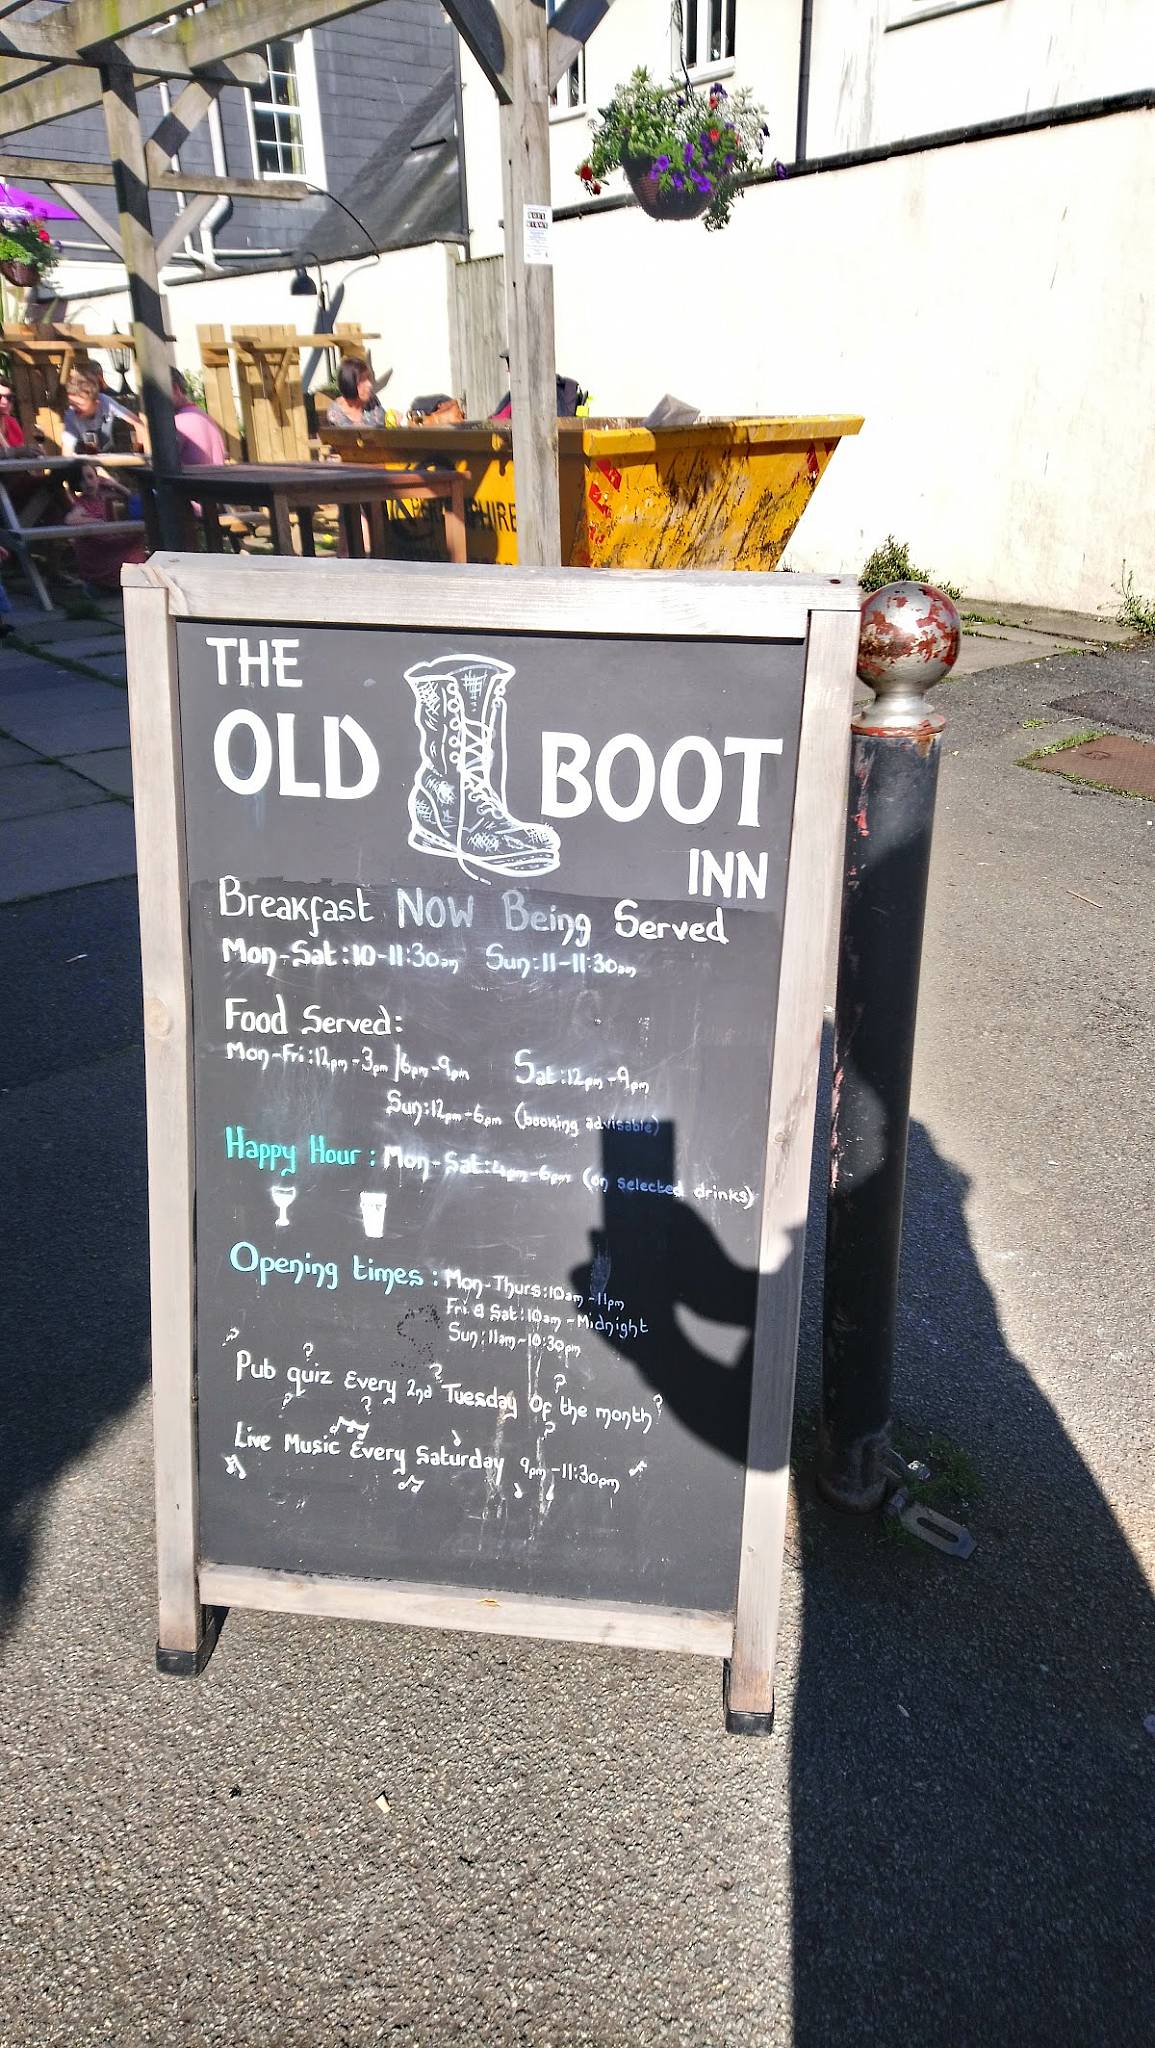 THE
OLD BOOT
INN
Breakfast NOW Being Served
Mon-Sat:10-11:30am Sun:11-11:30am
Food Served:
Mon-Fri:12pm-3pm/6pm-9pm Sat:12pm-9pm
Sun:12pm-6pm (booking advisable)
Happy Hour: Mon-Sat:4pm-6pm (on selected drinks)
Opening times: Mon-Thurs:10am-11pm
Fri & Sat:10am-Midnight
Sun:11am-10:30pm
Pub quiz Every 2nd Tuesday Of the month
Live Music Every Saturday 9pm-11:30pm